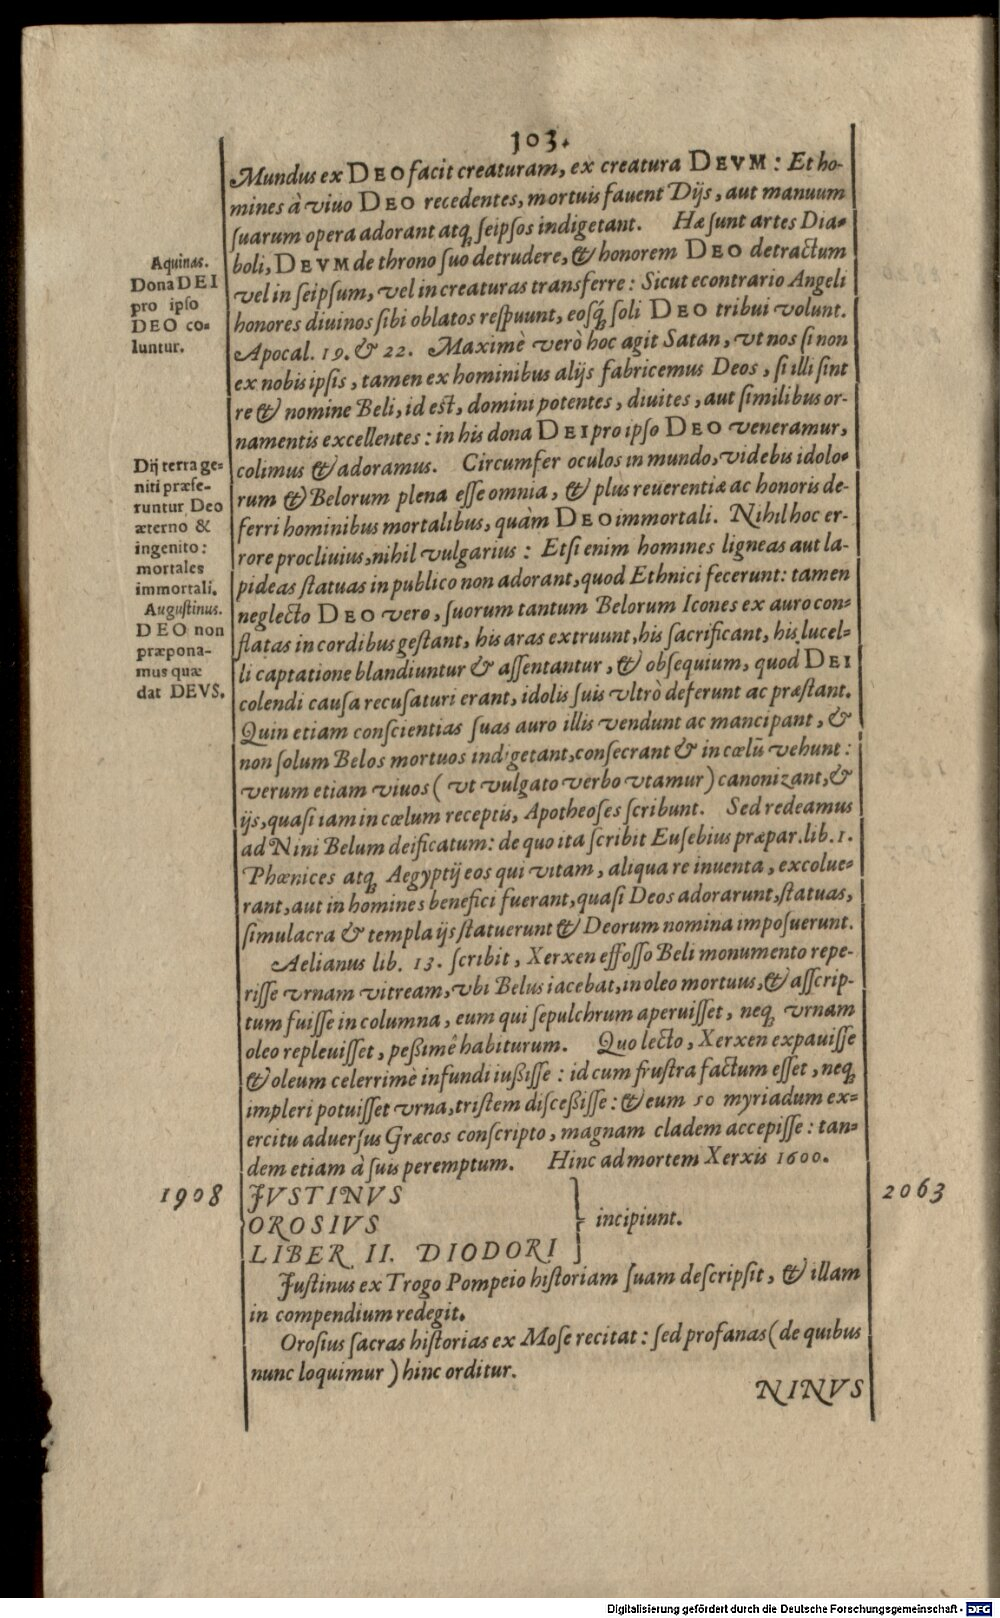 103.
Mundus ex DEO facit creaturam, ex creatura DEVM : Et ho-
mines à viuo DEO recedentes, mortuis fauent Dijs, aut manuum
ſuarum opera adorant atq́ ſeipſos indigetant. Hæ ſunt artes Dia-
boli, DEVM de throno ſuo detrudere, & honorem DEO detractum
vel in ſeipſum, vel in creaturas transferre : Sicut econtrario Angeli
honores diuinos ſibi oblatos reſpuunt, eosq́ ſoli DEO tribui volunt.
Apocal. 19. & 22. Maximè verò hoc agit Satan, vt nos ſi non
ex nobis ipſis, tamen ex hominibus alijs fabricemus Deos, ſi illi ſint
re & nomine Beli, id eſt, domini potentes, diuites, aut ſimilibus or-
namentis excellentes : in his dona DEI pro ipſo DEO veneramur,
colimus & adoramus. Circumfer oculos in mundo, videbis idolo-
rum & Belorum plena eſſe omnia, & plus reuerentiæ ac honoris de-
ferri hominibus mortalibus, quàm DEO immortali. Nihil hoc er-
rore procliuius, nihil vulgarius : Etſi enim homines ligneas aut la-
pideas ſtatuas in publico non adorant, quod Ethnici fecerunt: tamen
neglecto DEO vero, ſuorum tantum Belorum Icones ex auro con-
flatas in cordibus geſtant, his aras extruunt, his ſacrificant, his lucel-
li captatione blandiuntur & aſſentantur, & obſequium, quod DEI
colendi cauſa recuſaturi erant, idolis ſuis vltrò deferunt ac præſtant.
Quin etiam conſcientias ſuas auro illis vendunt ac mancipant, &
non ſolum Belos mortuos indigetant, conſecrant & in cœlũ vehunt :
verum etiam viuos ( vt vulgato verbo vtamur ) canonizant, &
ijs, quaſi iam in cœlum receptis, Apotheoſes ſcribunt. Sed redeamus
ad Nini Belum deificatum: de quo ita ſcribit Euſebius præpar. lib. 1.
Phœnices atq́ Aegyptij eos qui vitam, aliqua re inuenta, excolue-
rant, aut in homines benefici fuerant, quaſi Deos adorarunt, ſtatuas,
ſimulacra & templa ijs ſtatuerunt & Deorum nomina impoſuerunt.
Aelianus lib. 13. ſcribit, Xerxen effoſſo Beli monumento repe-
riſſe vrnam vitream, vbi Belus iacebat, in oleo mortuus, & aſſcrip-
tum fuiſſe in columna, eum qui ſepulchrum aperuiſſet, neq́ vrnam
oleo repleuiſſet, peßimê habiturum. Quo lecto, Xerxen expauiſſe
& oleum celerrimè infundi iußiſſe : id cum fruſtra factum eſſet, neq́
impleri potuiſſet vrna, triſtem diſceßiſſe : & eum 50 myriadum ex-
ercitu aduerſus Græcos conſcripto, magnam cladem accepiſſe : tan-
dem etiam à ſuis peremptum. Hinc ad mortem Xerxis 1600.
1908 JVSTINVS 2063
OROSIVS } incipiunt.
LIBER II. DIODORI
Juſtinus ex Trogo Pompeio hiſtoriam ſuam deſcripſit, & illam
in compendium redegit.
Oroſius ſacras hiſtorias ex Moſe recitat : ſed profanas ( de quibus
nunc loquimur ) hinc orditur.
NINVS
Aquinas.
Dona DEI
pro ipſo
DEO co-
luntur.
Dij terra ge-
niti præfe-
runtur Deo
æterno &
ingenito :
mortales
immortali.
Auguſtinus.
DEO non
præpona-
mus quæ
dat DEVS.
Digitalisierung gefördert durch die Deutsche Forschungsgemeinschaft - DFG